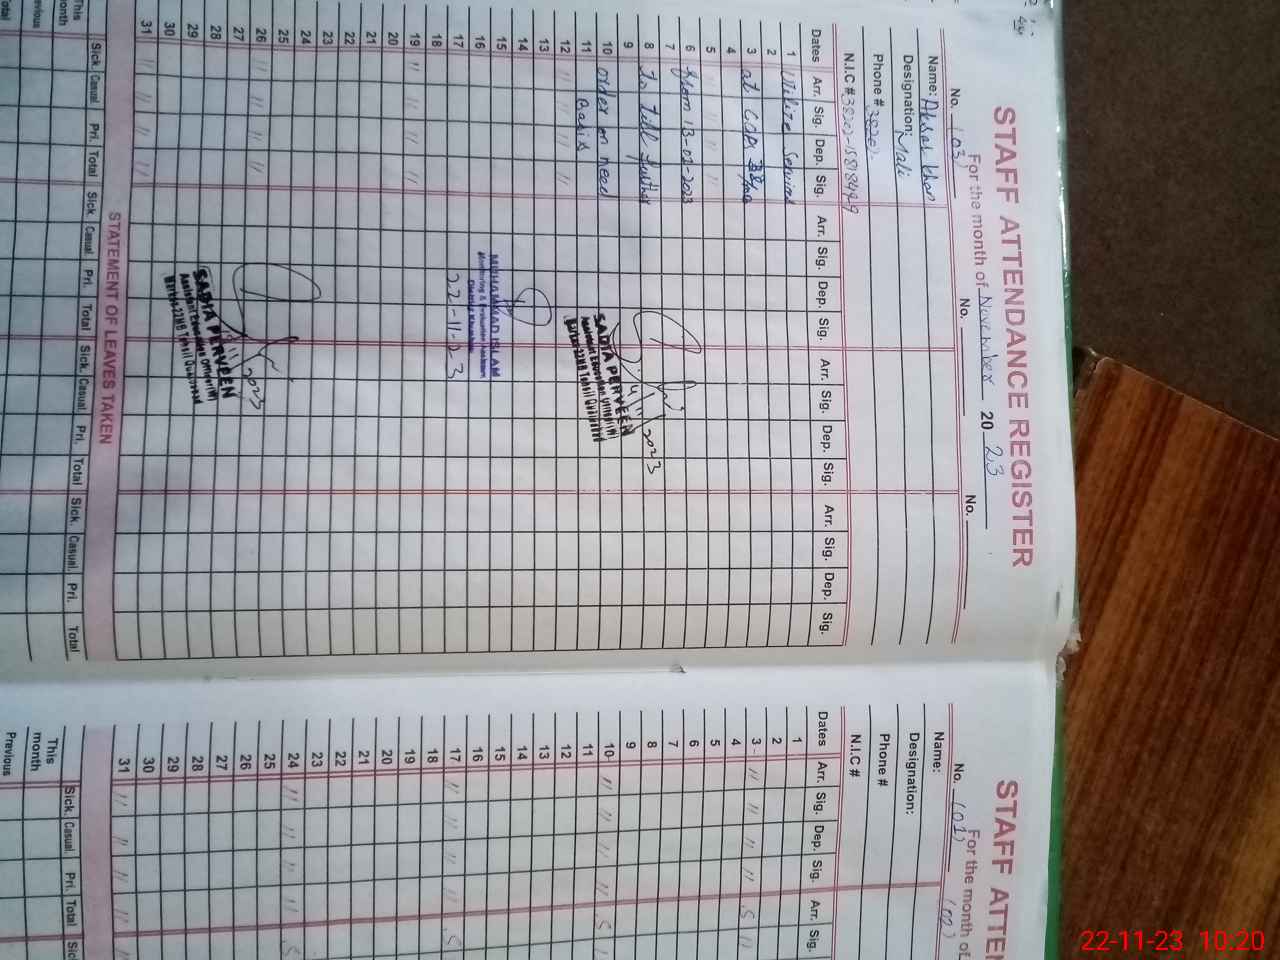 STAFF ATTENDANCE REGISTER
For the month of November 2023
No. (03)
No.
No.
Name: Akbar Khan
Designation: Mali
Phone # 38202
N.I.C #
Dates Arr. Sig. Dep. Sig. Arr. Sig. Dep. Sig. Arr. Sig. Dep. Sig. Arr. Sig. Dep. Sig.
1 Utilize Services
2
3 at
4
5 " " " "
6 from 13-02-2023
7
8 To Till further
9
10 order on need
11 Basis
12 " " " "
13
14
15
16
17
18
19 " " " "
20
21
22
23
24
25
26 " " " "
27
28
29
30
31 " " " "
SADIA PERVEEN
Assistant Education Officer (W)
Tehsil Quaidabad
2023
MUHAMMAD ISLAM
Monitoring & Evaluation Assistant
22-11-23
SADIA PERVEEN
Assistant Education Officer (W)
Tehsil Quaidabad
2023
STATEMENT OF LEAVES TAKEN
Sick. Casual Pri. Total Sick. Casual Pri. Total Sick. Casual. Pri. Total Sick. Casual. Pri. Total
This
month
evious
otal
STAFF ATTEN
For the month of
No. (01)
(02)
Name:
Designation:
Phone #
N.I.C #
Dates Arr. Sig. Dep. Sig. Arr. Sig.
1
2
3 " " " " S "
4
5
6
7
8
9
10 " " " " S
11
12
13
14
15
16
17 " " " " S
18
19
20
21
22
23
24 " " " " S
25
26
27
28
29
30
31 " " " " "
Sick. Casual. Pri. Total Sic
This
month
Previous
22-11-23 10:20